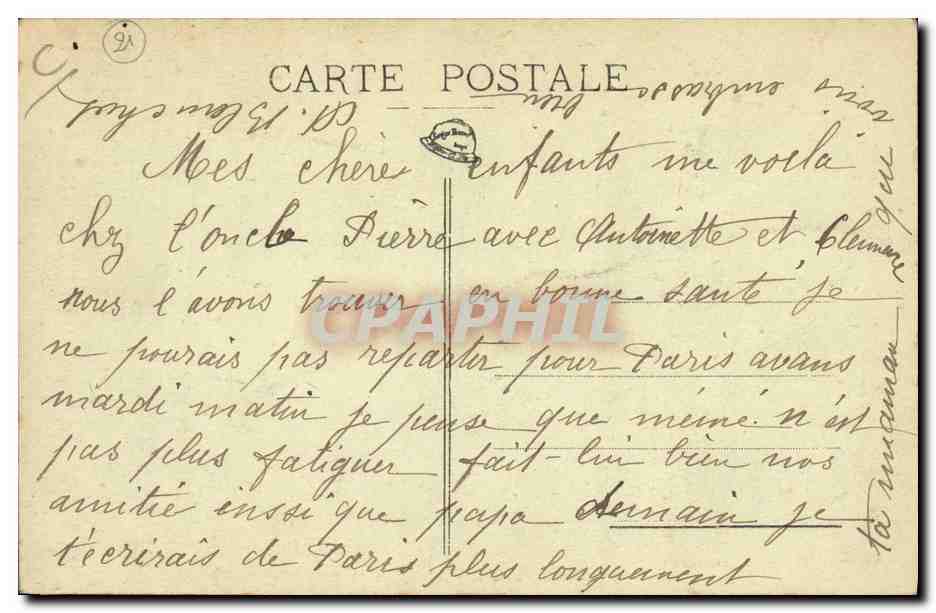 21
CARTE POSTALE
Mes chère enfants me voila
chez l'oncle Pierre avec Antoinette et Clemence
nous l'avons trouver en bonne santé, je
ne pourais pas repartir pour Paris avans
mardi matin je pense que mémé n'est
pas plus fatiguer fait-lui bien nos
amitié inssi que papa demain je
t'ecrirais de Paris plus longuement
ta maman qui
vous embrasse bien
CPAPHIL